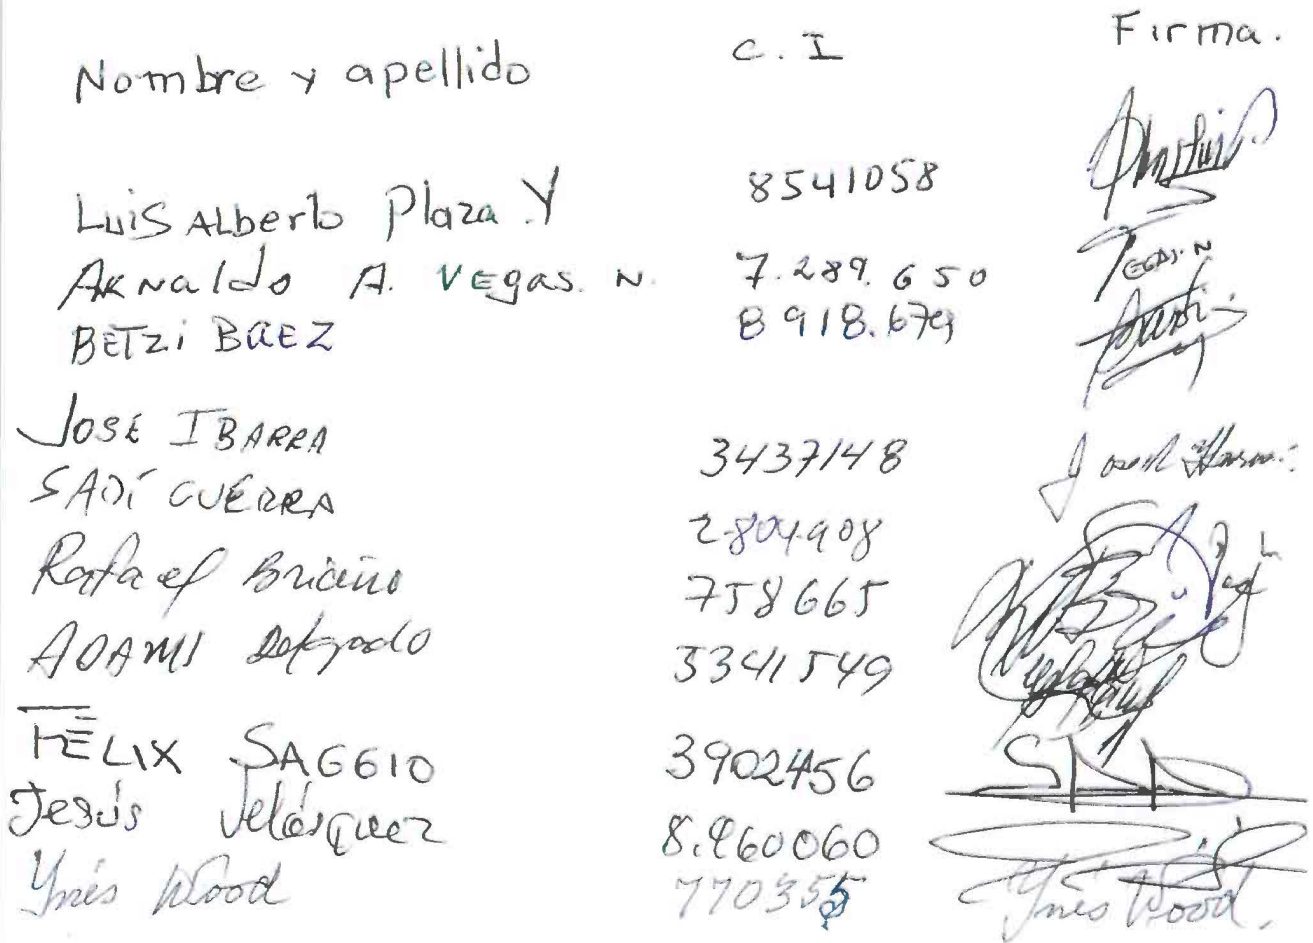 Nombre y apellido C.I Firma.
Luis Alberto Plaza Y 8541058
Arnaldo A. Vegas. N. 7.289.650 Vegas.N
BETZi BaEZ 8918.679
JOSÉ IBARRA 3437148
SADÍ GUERRA 2.804.908
Rafael Briceño 758665
ADAMS Delgado 3341549
FÉLIX SAGGIO 3902456
Jesús Velásquez 8.960060
Ynés Wood Ynés Wood.